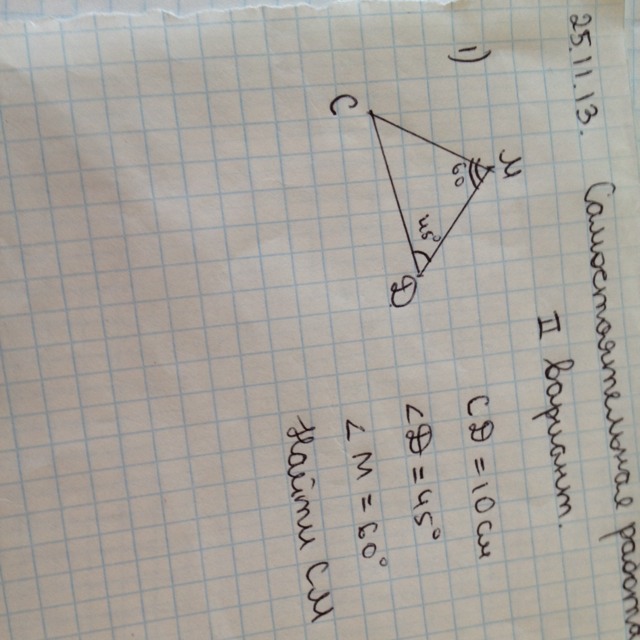 25.11.13.
Самостоятельная
II вариант.
1)
M
60°
45°
C
D
CD = 10 см
∠D = 45°
∠M = 60°
Найти CM